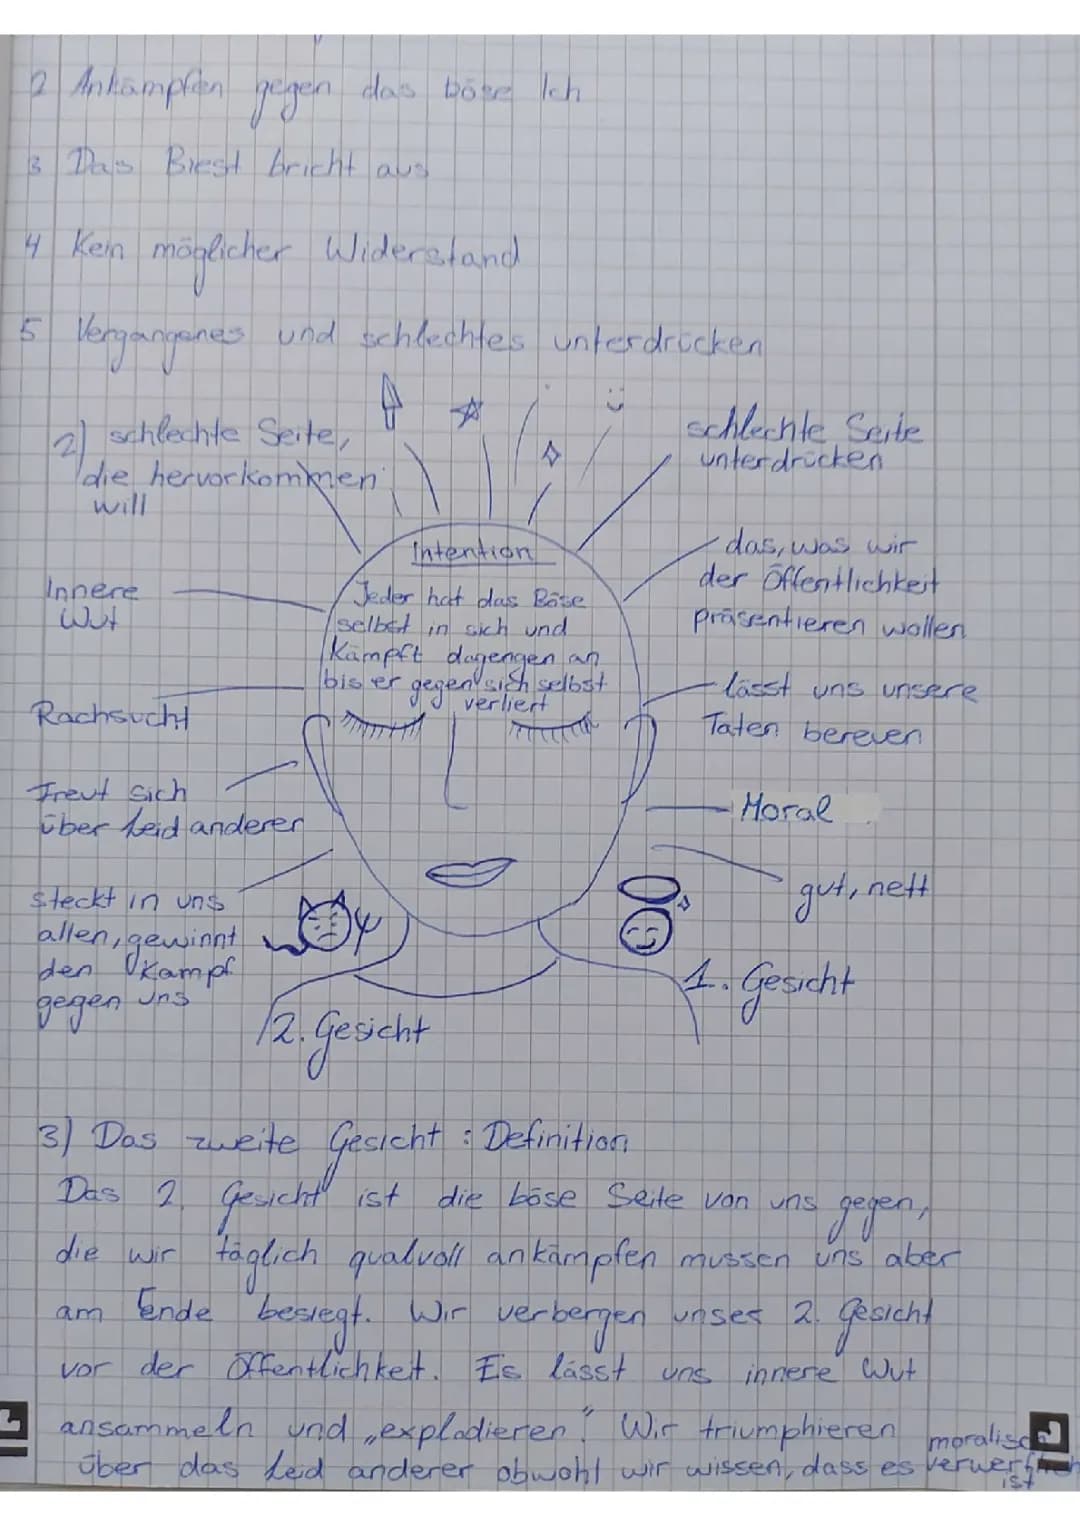 2 Ankämpfen gegen das böse Ich
3 Das Biest bricht aus
4 Kein möglicher Widerstand
5 Vergangenes und schlechtes unterdrücken
2) schlechte Seite,
die hervorkommen
will
Innere
Wut
Rachsucht
Freut sich
über Leid anderer
steckt in uns
allen, gewinnt
den Kampf
gegen uns
2. Gesicht
Intention
Jeder hat das Böse
selbst in sich und
kämpft dagengen an
bis er gegen sich selbst
verliert
schlechte Seite
unterdrücken
das, was wir
der Öffentlichkeit
präsentieren wollen
lässt uns unsere
Taten bereuen
Moral
gut, nett
1. Gesicht
3) Das zweite Gesicht : Definition
Das 2. Gesicht ist die böse Seite von uns gegen,
die wir täglich qualvoll ankämpfen mussen uns aber
am Ende besiegt. Wir verbergen unses 2. Gesicht
vor der Öffentlichkeit. Es lässt uns innere Wut
ansammeln und „explodieren". Wir triumphieren
über das Leid anderer obwohl wir wissen, dass es moralisch verwerflich
ist